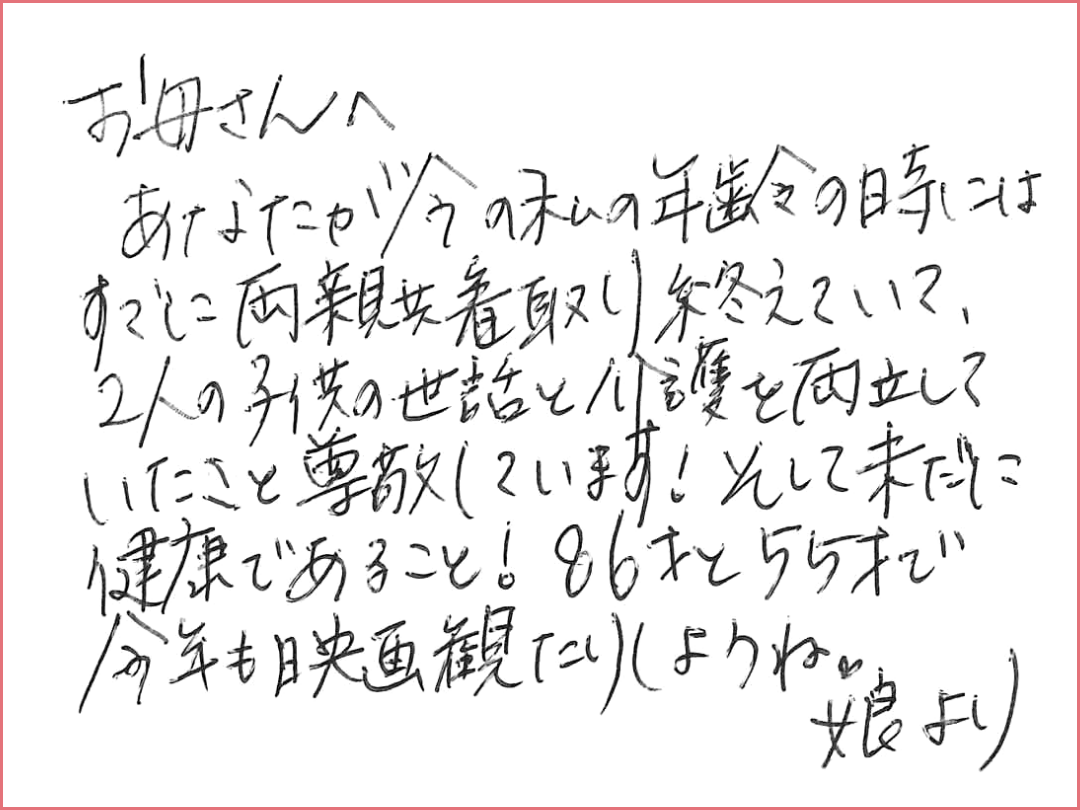 お母さんへ
あなたが今の私の年齢の時には
すでに両親共看取り終えていて、
2人の子供の世話と介護を両立して
いたこと尊敬しています！そして未だに
健康であること！86才と55才で
今年も映画観たりしようね。
娘より